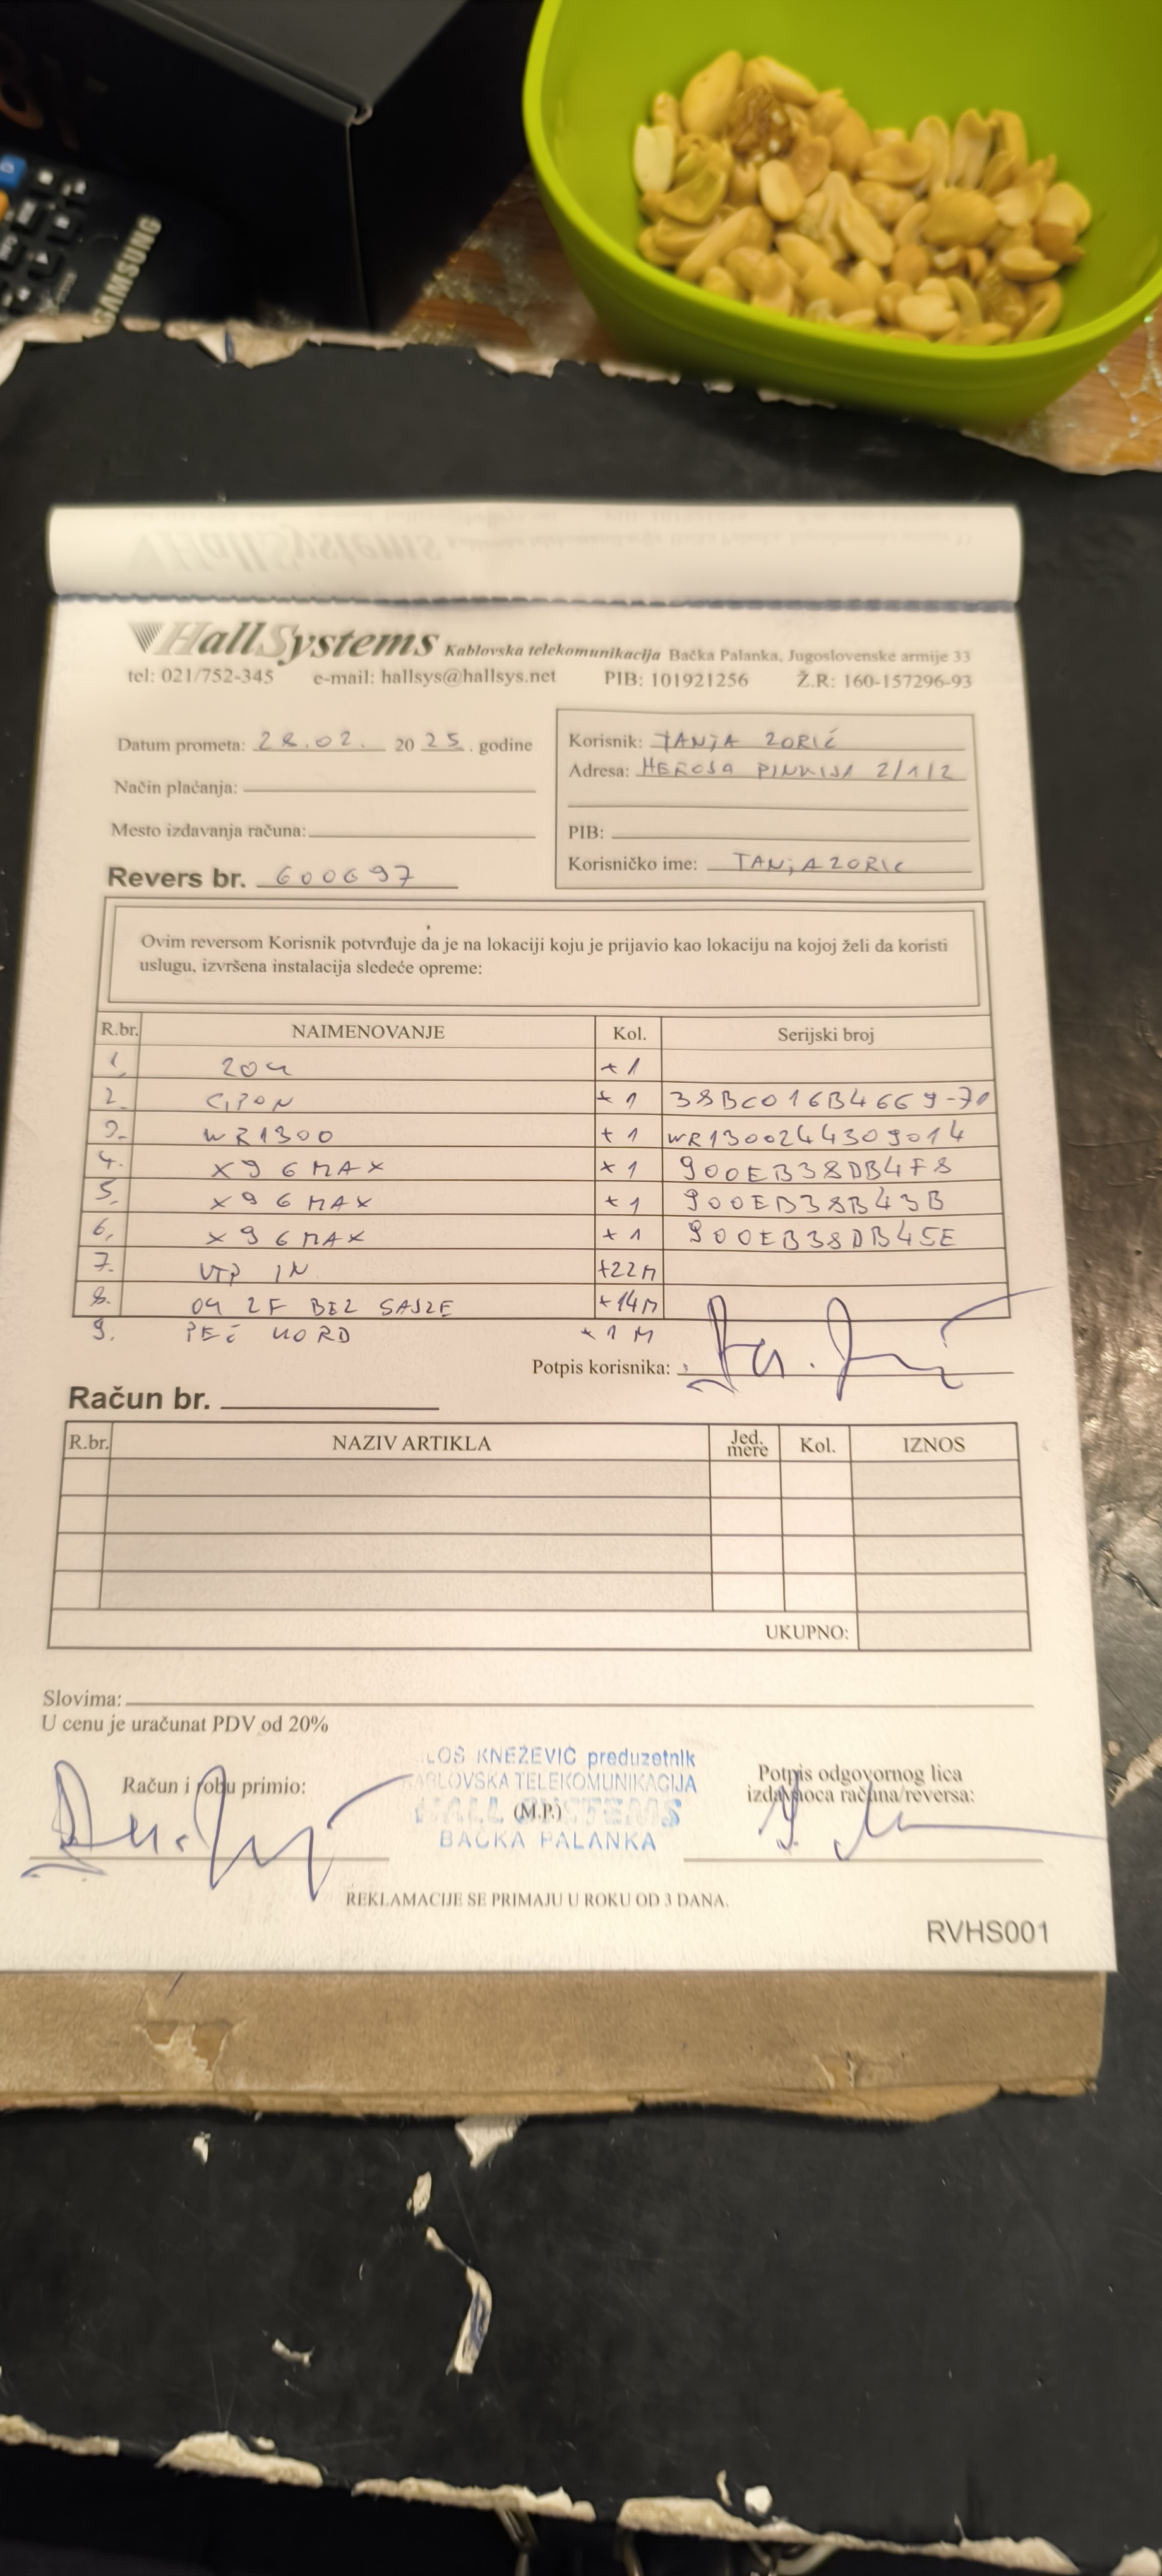 SAMSUNG
HallSystems Kablovska telekomunikacija Bačka Palanka, Jugoslovenske armije 33
tel: 021/752-345 e-mail: hallsys@hallsys.net PIB: 101921256 Ž.R: 160-157296-93
Datum prometa: 28.02. 20 25. godine
Korisnik: TANJA ZORIĆ
Adresa: HEROJA PINKIJA 2/1/2
Način plaćanja:
Mesto izdavanja računa:
PIB:
Korisničko ime: TANJAZORIC
Revers br. 600697
Ovim reversom Korisnik potvrđuje da je na lokaciji koju je prijavio kao lokaciju na kojoj želi da koristi
uslugu, izvršena instalacija sledeće opreme:
R.br. NAIMENOVANJE Kol. Serijski broj
1. ZOU *1
2. GPON *1 38BC016B4669-70
3. WR1300 *1 WR1300244309014
4. X96MAX *1 900EB38DB4F8
5. X96MAX *1 900EB38B43B
6. X96MAX *1 900EB38DB45E
7. UTP IN *22M
8. OU 2F BEZ SAJZE *14M
9. *1M
Potpis korisnika:
Račun br.
R.br. NAZIV ARTIKLA Jed. mere Kol. IZNOS
UKUPNO:
Slovima:
U cenu je uračunat PDV od 20%
Račun i robu primio:
LOŠ KNEŽEVIĆ preduzetnik
KABLOVSKA TELEKOMUNIKACIJA
HALL SYSTEMS
(M.P.)
BAČKA PALANKA
Potpis odgovornog lica
izdavaoca računa/reversa:
REKLAMACIJE SE PRIMAJU U ROKU OD 3 DANA.
RVHS001